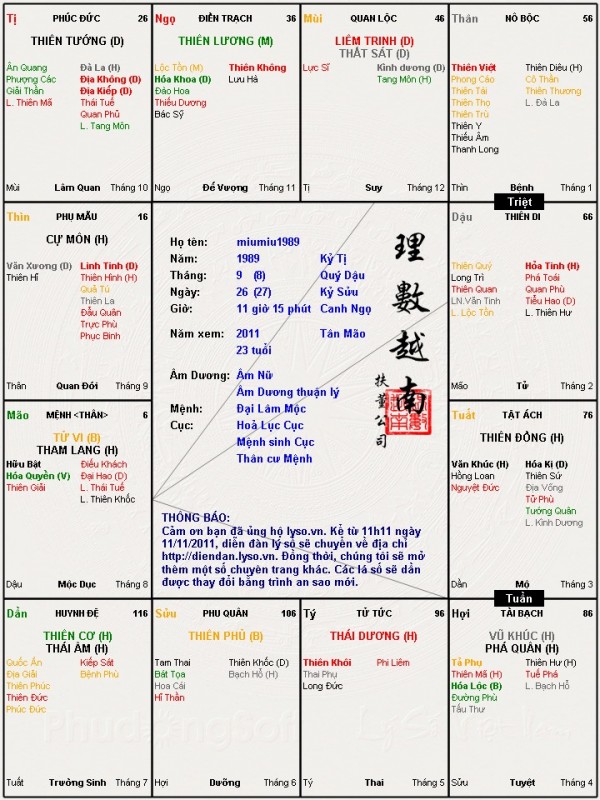 Tị PHÚC ĐỨC 26
THIÊN TƯỚNG (D)
Ân Quang Đà La (H)
Phượng Các Địa Không (D)
Giải Thần Địa Kiếp (D)
L. Thiên Mã Thái Tuế
Quan Phủ
L. Tang Môn
Mùi Lâm Quan Tháng 10
Ngọ ĐIỀN TRẠCH 36
THIÊN LƯƠNG (M)
Lộc Tồn (M) Thiên Không
Hóa Khoa (D) Lưu Hà
Đào Hoa
Thiếu Dương
Bác Sỹ
Ngọ Đế Vượng Tháng 11
Mùi QUAN LỘC 46
LIÊM TRINH (D)
THẤT SÁT (D)
Lực Sĩ Kình dương (D)
Tang Môn (H)
Tị Suy Tháng 12
Thân NÔ BỘC 56
Thiên Việt Thiên Diêu (H)
Phong Cáo Cô Thần
Thiên Tài Thiên Thương
Thiên Thọ L. Đà La
Thiên Trù
Thiên Y
Thiếu Âm
Thanh Long
Thìn Bệnh Tháng 1
Triệt
Thìn PHỤ MẪU 16
CỰ MÔN (H)
Văn Xương (D) Linh Tinh (D)
Thiên Hỉ Thiên Hình (H)
Quả Tú
Thiên La
Đẩu Quân
Trực Phù
Phục Binh
Thân Quan Đới Tháng 9
Họ tên: miumiu1989
Năm: 1989 Kỷ Tị
Tháng: 9 (8) Quý Dậu
Ngày: 26 (27) Kỷ Sửu
Giờ: 11 giờ 15 phút Canh Ngọ
Năm xem: 2011 Tân Mão
23 tuổi
Âm Dương: Âm Nữ
Âm Dương thuận lý
Mệnh: Đại Lâm Mộc
Cục: Hoả Lục Cục
Mệnh sinh Cục
Thân cư Mệnh
理數越南
扶董公司
THÔNG BÁO:
Cảm ơn bạn đã ủng hộ lyso.vn. Kể từ 11h11 ngày
11/11/2011, diễn đàn lý số sẽ chuyển về địa chỉ
http://diendan.lyso.vn. Đồng thời, chúng tôi sẽ mở
thêm một số chuyên trang khác. Các lá số sẽ dần
được thay đổi bằng trình an sao mới.
Dậu THIÊN DI 66
Thiên Quý Hỏa Tinh (H)
Long Trì Phá Toái
Thiên Quan Quan Phù
LN.Văn Tinh Tiểu Hao (D)
L. Lộc Tồn L. Thiên Hư
Mão Tử Tháng 2
Mão MỆNH <THÂN> 6
TỬ VI (B)
THAM LANG (H)
Hữu Bật Điếu Khách
Hóa Quyền (V) Đại Hao (D)
Thiên Giải L. Thái Tuế
L. Thiên Khốc
Dậu Mộc Dục Tháng 8
Tuất TẬT ÁCH 76
THIÊN ĐỒNG (H)
Văn Khúc (H) Hóa Kị (D)
Hồng Loan Thiên Sứ
Nguyệt Đức Địa Võng
Tử Phù
Tướng Quân
L. Kình Dương
Dần Mộ Tháng 3
Tuần
Dần HUYNH ĐỆ 116
THIÊN CƠ (H)
THÁI ÂM (H)
Quốc Ấn Kiếp Sát
Địa Giải Bệnh Phù
Thiên Phúc
Thiên Đức
Phúc Đức
Tuất Trường Sinh Tháng 7
Sửu PHU QUÂN 106
THIÊN PHỦ (B)
Tam Thai Thiên Khốc (D)
Bát Tọa Bạch Hổ (H)
Hoa Cái
Hĩ Thần
Hợi Dưỡng Tháng 6
Tý TỬ TỨC 96
THÁI DƯƠNG (H)
Thiên Khôi Phi Liêm
Thai Phụ
Long Đức
Tý Thai Tháng 5
Hợi TÀI BẠCH 86
VŨ KHÚC (H)
PHÁ QUÂN (H)
Tả Phụ Thiên Hư (H)
Thiên Mã (H) Tuế Phá
Hóa Lộc (B) L. Bạch Hổ
Đường Phù
Tấu Thư
Sửu Tuyệt Tháng 4